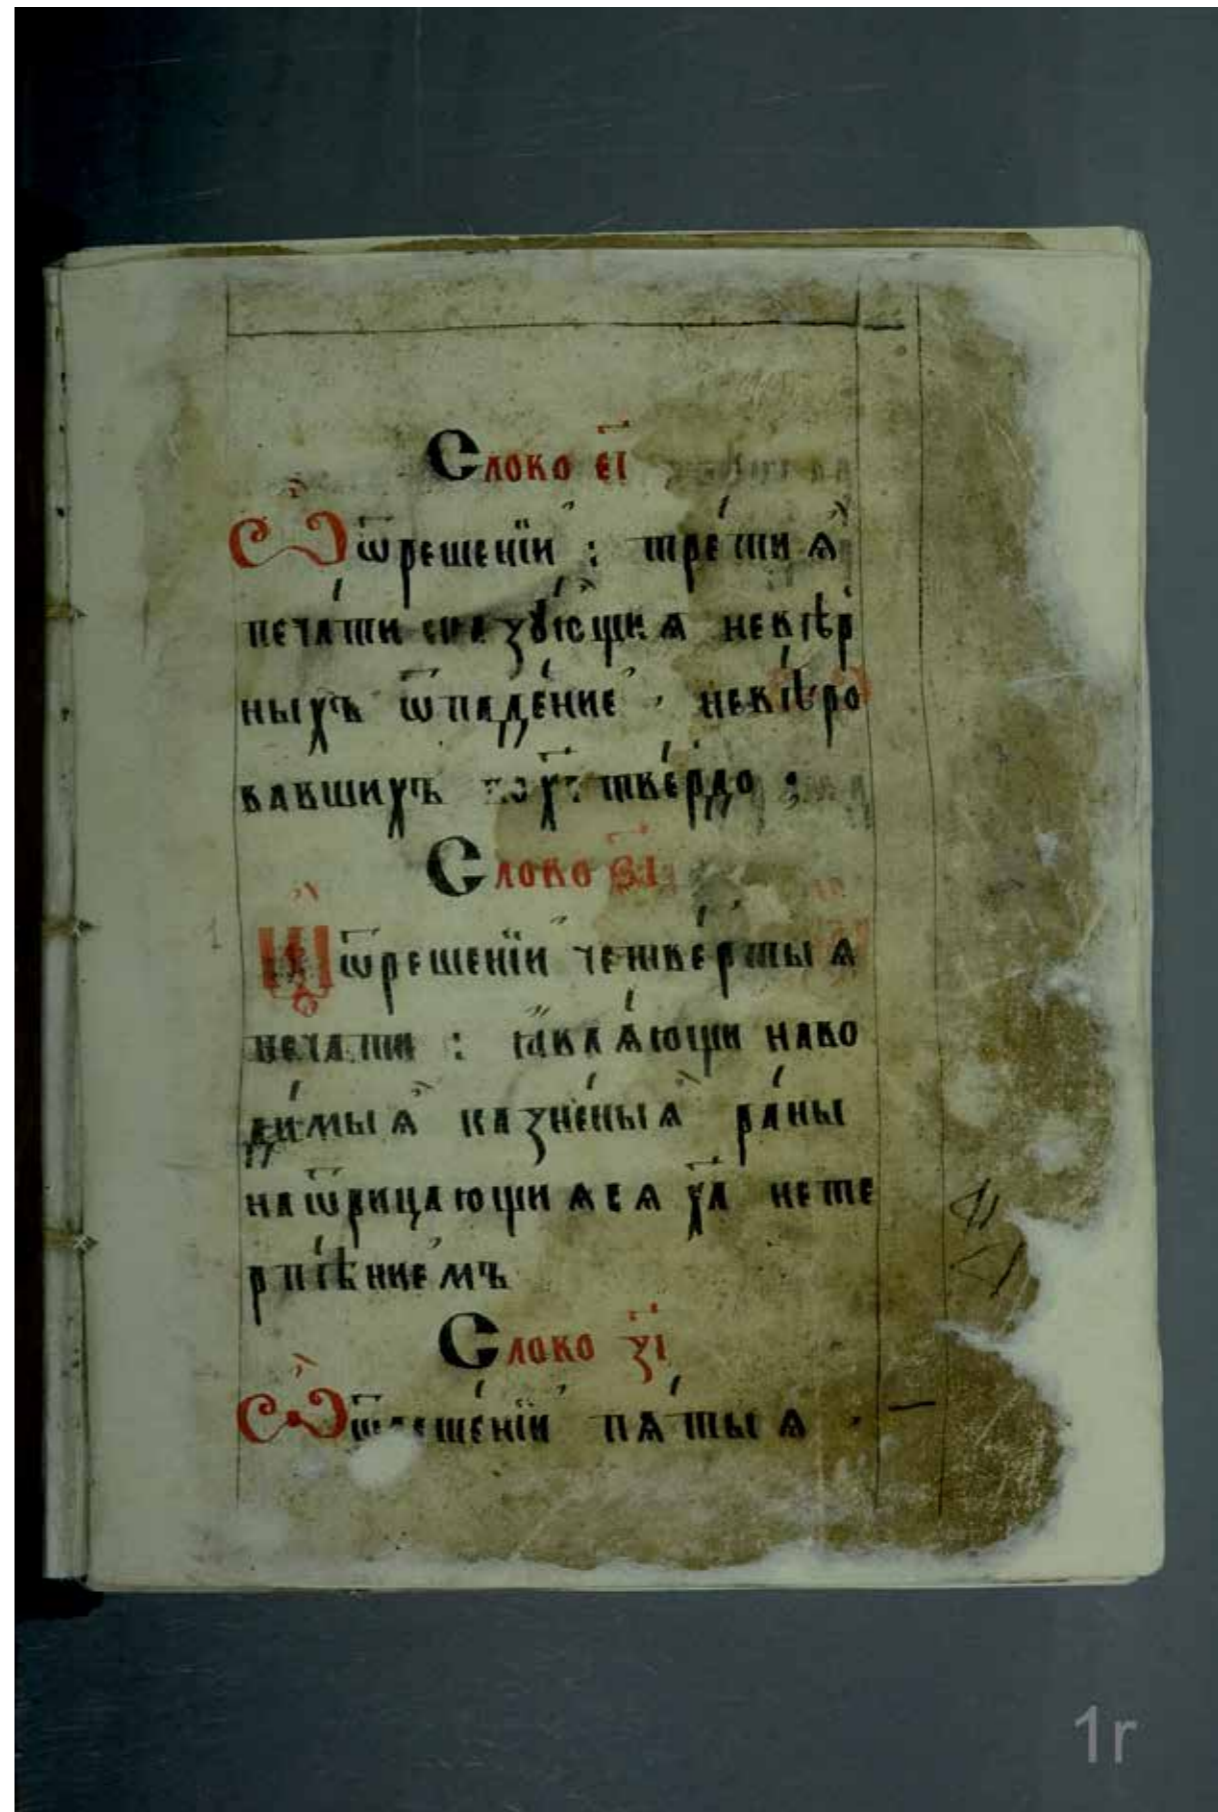 Слово є҃і
Ѡ ѿрешенїи : третиѧ
печати сказꙋющиѧ невѣр
ныхъ ѿпадение · невѣро
вавшихъ твердо :
Слово ѕ҃і
ѿрешенїи четвертыѧ
печати : ꙗвлѧющи наво
димыѧ казненыѧ раны
наѿрицающиѧсѧ хⷭ҇а нете
рпѣниемъ
Слово з҃і
Ѡ ѿрешенїи пѧтыѧ ·
1
1r